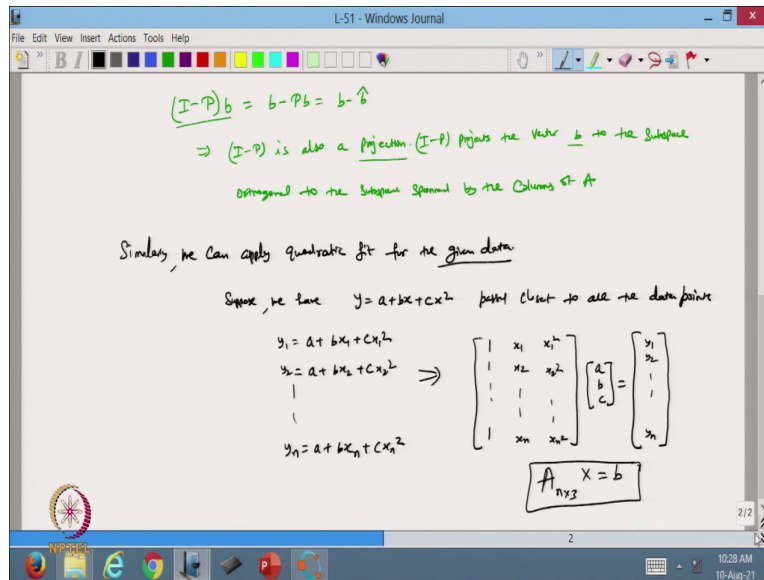 L-51 - Windows Journal
File Edit View Insert Actions Tools Help
(I-P)b = b-Pb = b-b̂
⇒ (I-P) is also a projection. (I-P) Projects the vector b to the subspace
orthogonal to the subspace spanned by the Columns of A
Similarly, we can apply quadratic fit for the given data
Suppose, we have y = a+bx+cx² passes closest to all the data points
y₁ = a + bx₁ + cx₁²
y₂ = a + bx₂ + cx₂²
yₙ = a + bxₙ + cxₙ²
⇒
1 x₁ x₁²
1 x₂ x₂²
1 xₙ xₙ²
a
b
c
=
y₁
y₂
yₙ
Aₙₓ₃ X = b
2/2
2
NPTEL
10:28 AM
10-Aug-21